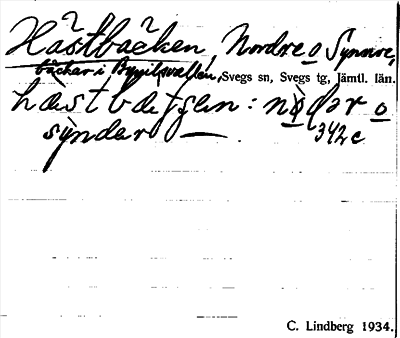 Hästbäcken, Nordre o Synnre,
bäckar i Byvallen, Svegs sn, Svegs tg, Jämtl. län.
hæstbæken: nòḍər o
sỳndər —
342c
C. Lindberg 1934.